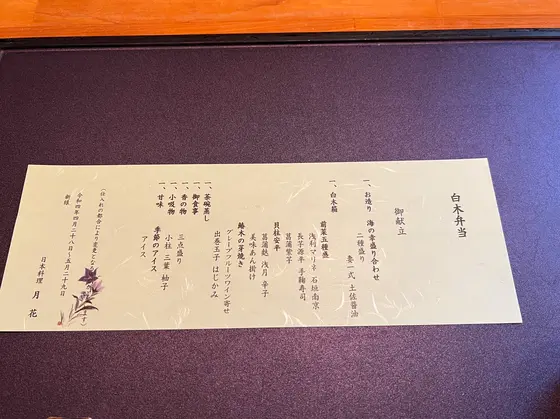 白木弁当
御献立
一、お造り 海の幸盛り合わせ
二種盛り 妻一式 土佐醤油
一、白木箱
前菜五種盛
浅利マリネ 石垣南京
長芋源平 手鞠寿司
菖蒲紫子
貝柱安平
菖蒲麩 浅月 辛子
美味あん掛け
鰆木の芽焼き
グレープフルーツワイン寄せ
出巻玉子 はじかみ
一、茶碗蒸し
一、御食事
一、香の物 三点盛り
一、小吸物 小柱 三葉 柚子
一、甘味 季節のアイス
アイス
(仕入れの都合により変更となる
ます)
令和四年四月二十八~五月二十九日
新緑
日本料理 月花